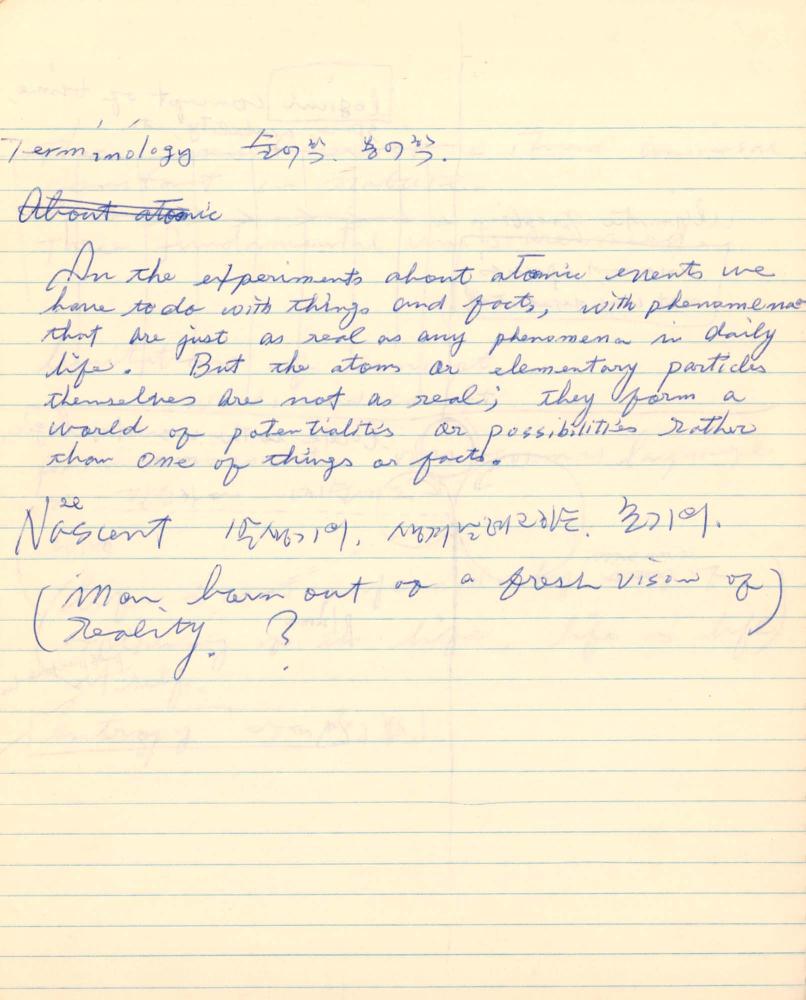 Terminology 술어학. 용어학.
About atomic
In the experiments about atomic events we
have to do with things and facts, with phenomena
that are just as real as any phenomena in daily
life. But the atoms or elementary particles
themselves are not as real; they form a
world of potentialities or possibilities rather
than one of things or facts.
Nascent 발생기의. 초기의.
(Man, born out of a fresh vision of
reality. ?)